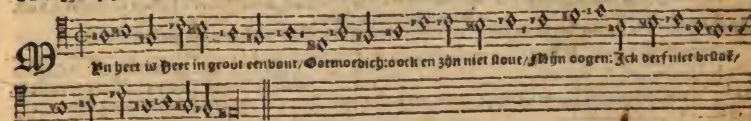 MYn hert is Heer in groot eenvout / Ootmoedich: oock en zijn niet stout / Mijn oogen: Ick derf niet bestaẽ /